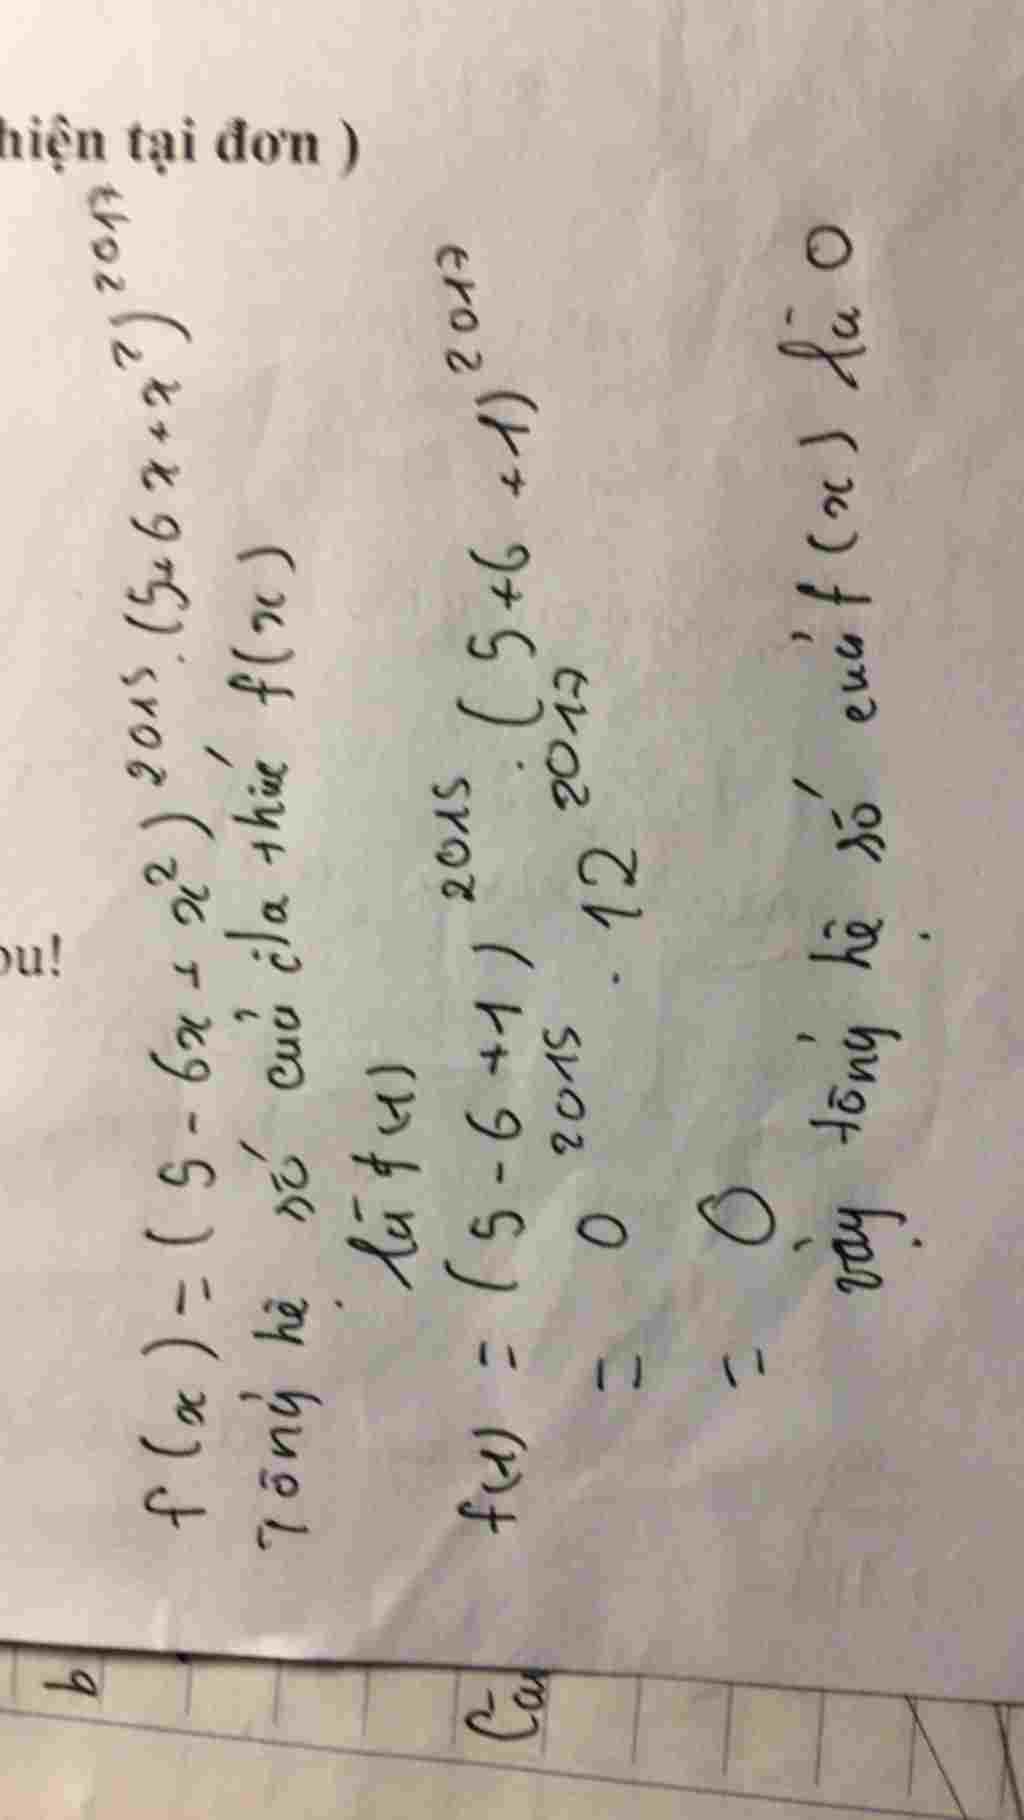 hiện tại đơn )
ou!
f(x) = (5 - 6x + x²)²⁰¹⁵.(5+6x+x²)²⁰¹⁷
Tổng hệ số của đa thức f(x)
là f(1)
f(1) = (5 - 6 + 1)²⁰¹⁵ . (5+6 +1)²⁰¹⁷
= 0²⁰¹⁵ . 12²⁰¹⁷
= 0
vậy tổng hệ số của f(x) là 0
b